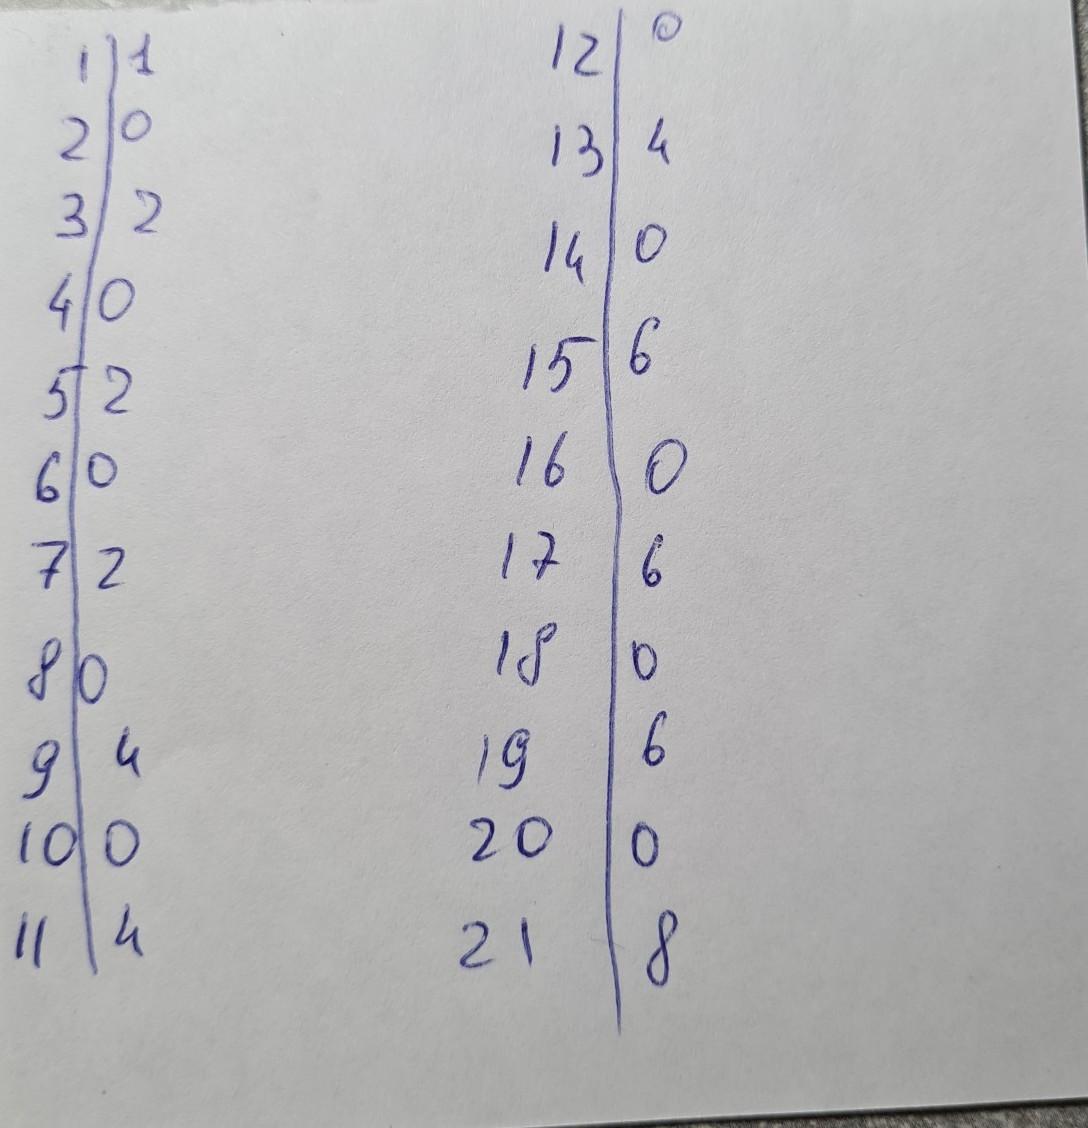 1 | 1
2 | 0
3 | 2
4 | 0
5 | 2
6 | 0
7 | 2
8 | 0
9 | 4
10 | 0
11 | 4
12 | 0
13 | 4
14 | 0
15 | 6
16 | 0
17 | 6
18 | 0
19 | 6
20 | 0
21 | 8